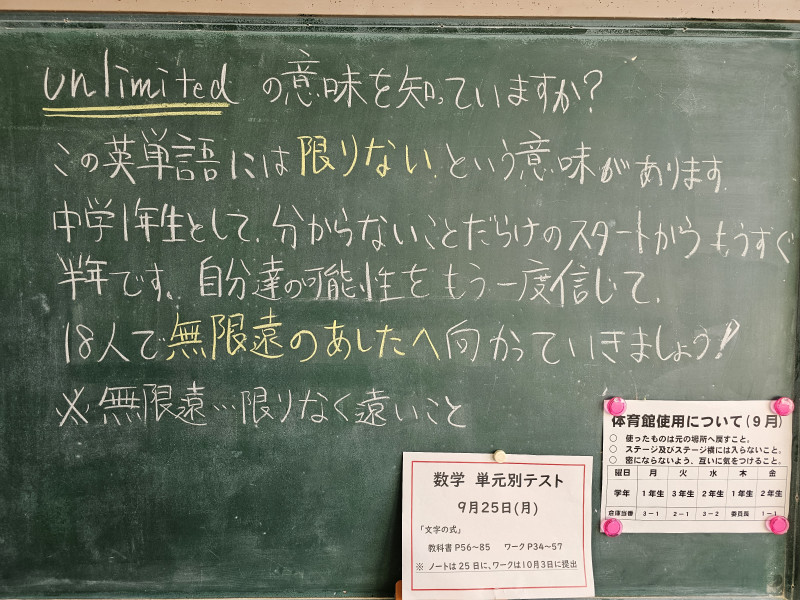 unlimited の意味を知っていますか?
この英単語には限りない。という意味があります。
中学1年生として、分からないことだらけのスタートからもうすぐ
半年です。自分達の可能性をもう一度信じて、
18人で無限遠のあしたへ向かっていきましょう!
※無限遠…限りなく遠いこと
数学 単元別テスト
9月25日(月)
「文字の式」
教科書P56~85 ワークP34~57
※ ノートは25日に、ワークは10月3日に提出
体育館使用について(9月)
○ 使ったものは元の場所へ戻すこと。
○ ステージ及びステージ横には入らないこと。
○ 密にならないよう、互いに気をつけること。
曜日 月 火 水 木 金
学年 1年生 3年生 2年生 1年生 2年生
倉庫当番 3-1 2-1 3-2 委員長 1-1